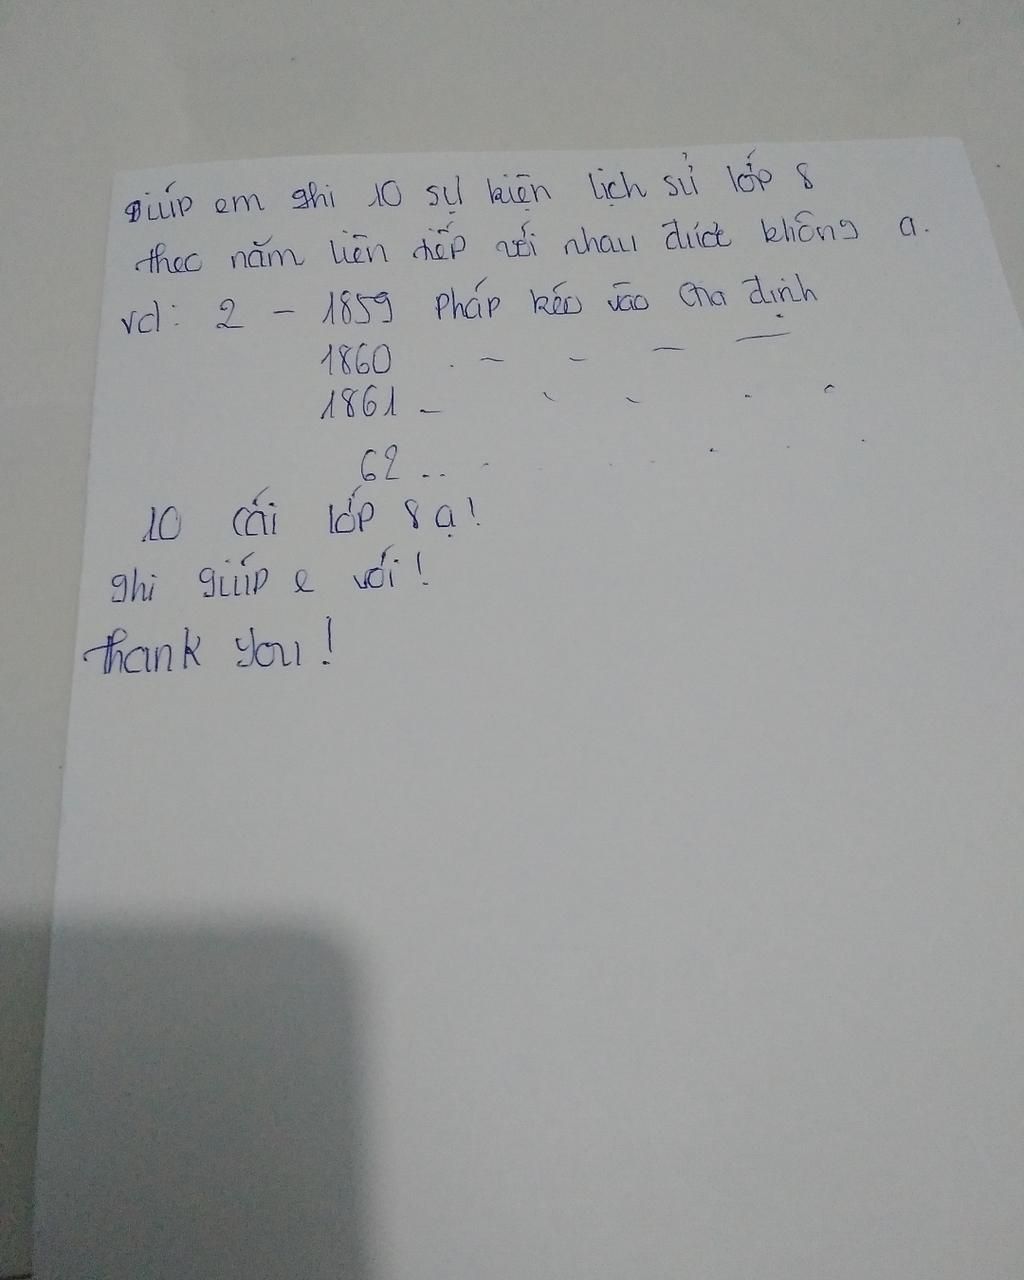 giúp em ghi 10 sự kiện lịch sử lớp 8
theo năm liên tiếp với nhau được không ạ.
vd: 2 - 1859 Pháp kéo vào Gia định
1860 . - - - -
1861 -
62 ..
10 cái lớp 8 ạ!
ghi giúp e với!
thank you!